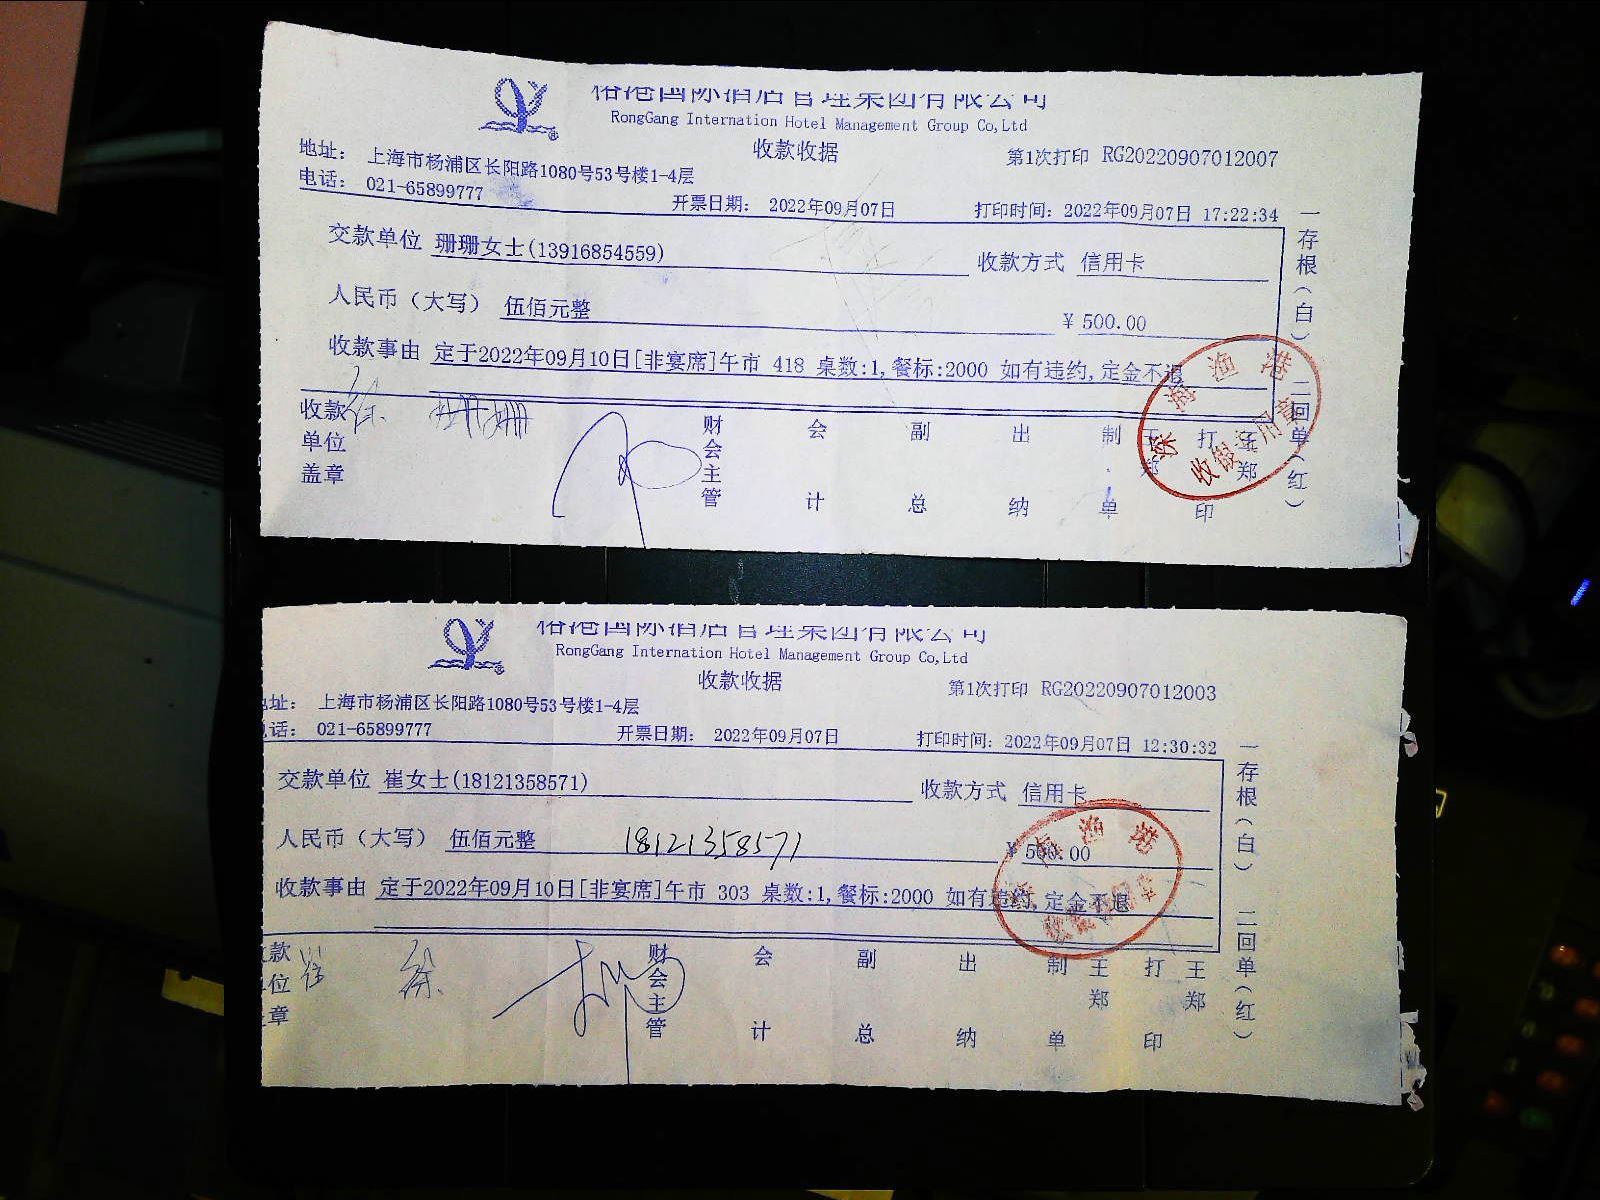 裕港国际酒店管理集团有限公司
RongGang Internation Hotel Management Group Co,Ltd
收款收据
第1次打印 RG20220907012007
地址： 上海市杨浦区长阳路1080号53号楼1-4层
电话： 021-65899777
开票日期： 2022年09月07日 打印时间：2022年09月07日 17:22:34
交款单位 珊珊女士(13916854559) 收款方式 信用卡
人民币（大写） 伍佰元整 ¥ 500.00
收款事由 定于2022年09月10日[非宴席]午市 418 桌数:1,餐标:2000 如有违约,定金不退
收款单位盖章 财会主管 会计 副总 出纳 制单 王郑 打印 王郑
一存根（白） 二回单（红）
渔港
裕港国际酒店管理集团有限公司
RongGang Internation Hotel Management Group Co,Ltd
收款收据
第1次打印 RG20220907012003
址： 上海市杨浦区长阳路1080号53号楼1-4层
话： 021-65899777
开票日期： 2022年09月07日 打印时间：2022年09月07日 12:30:32
交款单位 崔女士(18121358571) 收款方式 信用卡
人民币（大写） 伍佰元整 18121358571 ¥ 500.00
收款事由 定于2022年09月10日[非宴席]午市 303 桌数:1,餐标:2000 如有违约,定金不退
款位章 财会主管 会计 副总 出纳 制单 王郑 打印 王郑
一存根（白） 二回单（红）
渔港